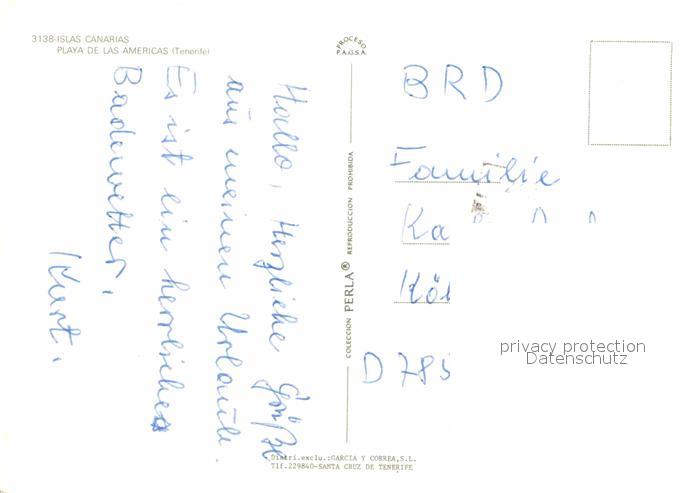 3138-ISLAS CANARIAS
PLAYA DE LAS AMERICAS (Tenerife)
Hallo, Herzliche Grüße
aus meinen Urlaub
Es ist ein herrliches
Badewetter.
Kurt.
PROCESO
P.A.G.S.A.
COLECCION PERLA® REPRODUCCION PROHIBIDA
BRD
Familie
Ka
Köl
D 785
privacy protection
Datenschutz
Distri.exclu.:GARCIA Y CORREA,S.L.
Tlf.229840-SANTA CRUZ DE TENERIFE